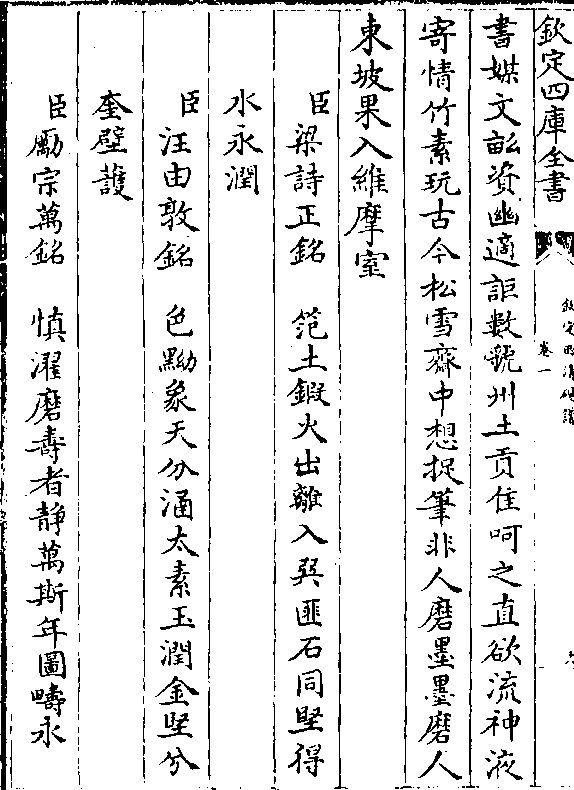 欽定四庫全書
欽定西清硯譜
卷一
書媒文畝資幽適詎數虢州土貢佳呵之直欲流神液
寄情竹素玩古今松雪齋中想捉筆非人磨墨墨磨人
東坡果入維摩室
臣梁詩正銘 笵土鍛火出離入巽匪石同堅得
水永潤
臣汪由敦銘 色黝象天分涵太素玉潤金堅兮
奎壁護
臣勵宗萬銘 慎濯磨壽者静萬斯年圖疇永